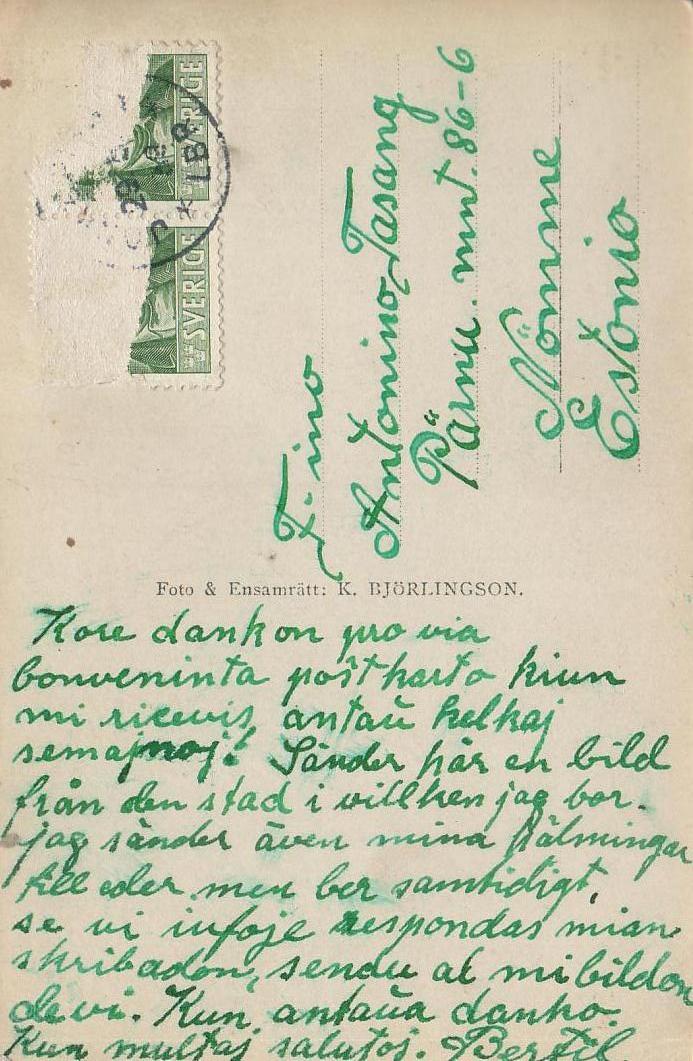 SVERIGE
SVERIGE
LBR
29
F-ino
Antonino Tasang
Pärnu. mnt. 86-6
Nõmme
Estonio
Foto & Ensamrätt: K. BJÖRLINGSON.
Kore dankon pro via
bonveninta poŝtkarto kiun
mi ricevis, antaŭ kelkaj
semajnoj! Sänder här en bild
från den stad i villken jag bor.
jag sänder även mina hälsningar
till eder men ber samtidigt,
se vi infoje respondas mian
skribadon, sendu al mi bildon
de vi. Kun antaŭa danko.
Kun multaj salutoj. Bertil